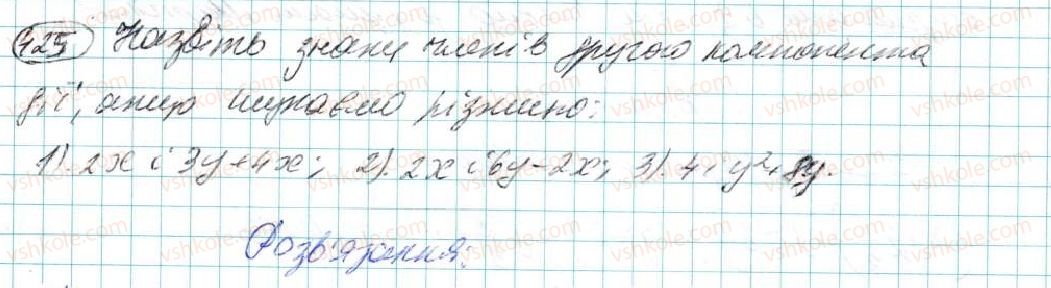 425 Назвіть знаки членів другого компонента
дії, якщо шукаємо різницю:
1). 2x і 3y+4x; 2). 2x і 6y-2x; 3). 4 і y²+8y.
Розв'язання: